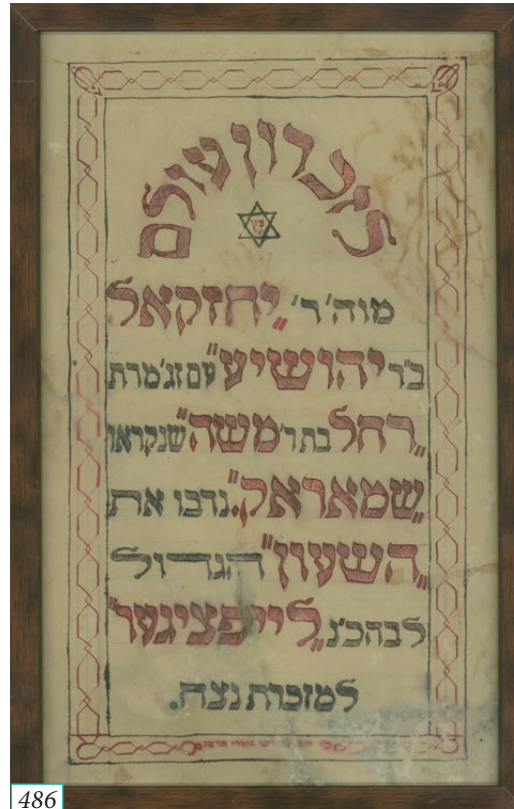 לזכרון עולם
ציון
מוה'ר' "יחזקאל
ב"ר יהושיע" עם זג'מרת
"רחל בתר' משה" שנקראו
"שמאראק". נדבו את
"השעון" הגדול
לבהכ'נ "לייפציגער"
למזכרת נצח.
486